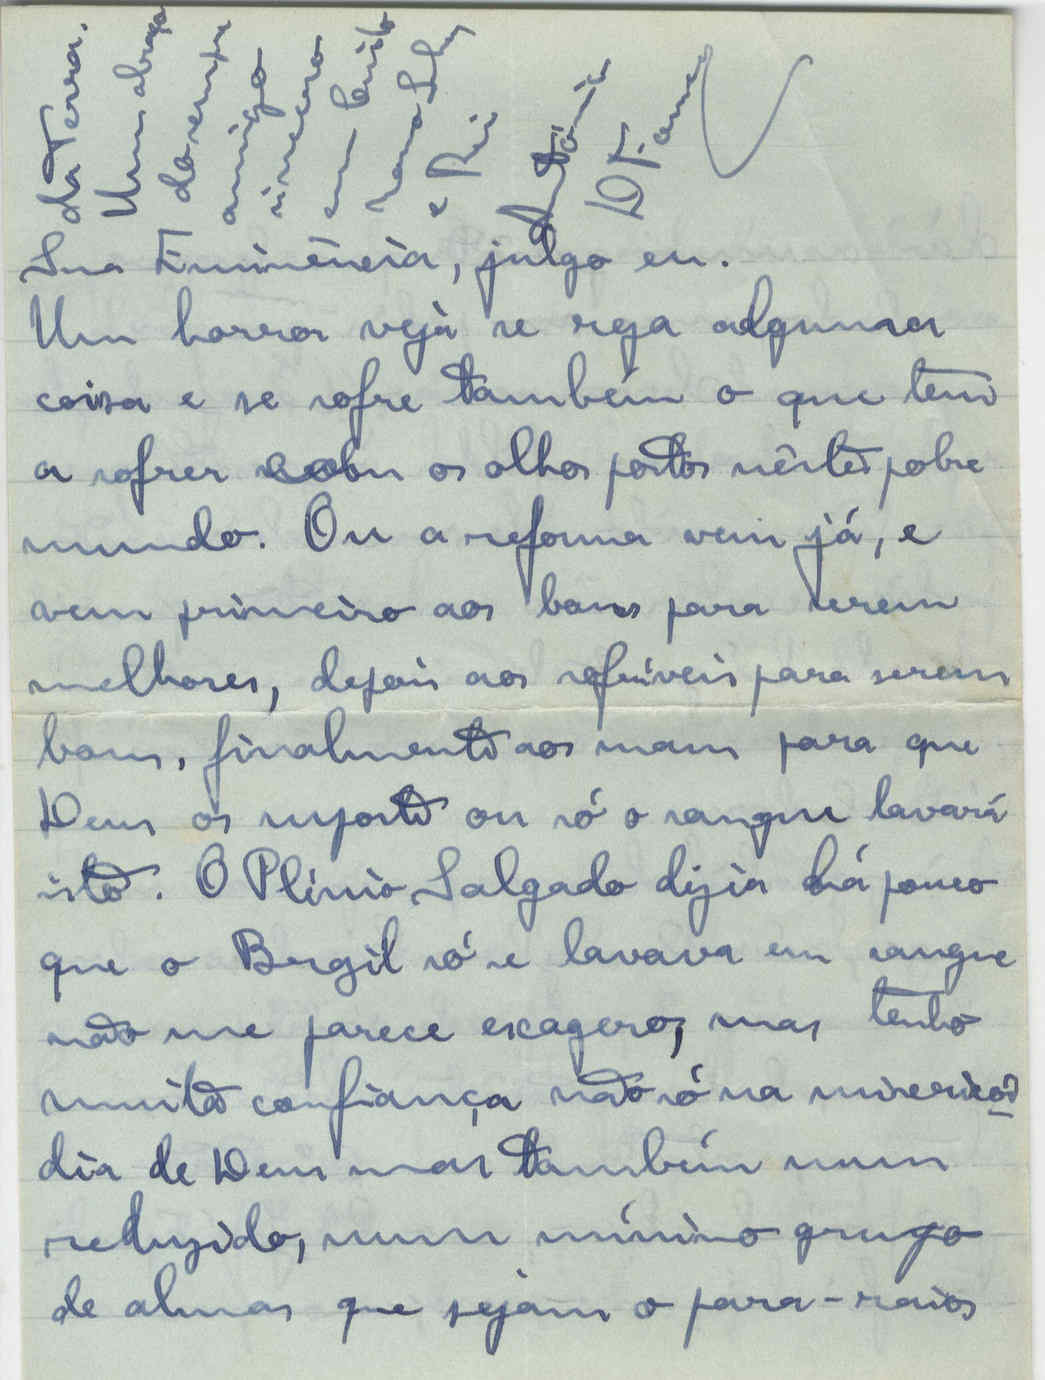 Sua Eminência, julgo eu.
Um horror vejà se reza alguma
coisa e se sofre também o que tem
a sofrer sobre os olhos postos nêste pobre
mundo. Ou a reforma vem já, e
vem primeiro aos bons para serem
melhores, depois aos sofríveis para serem
bons, finalmente aos maus para que
Deus os suporte ou só o sangue lavará
isto. O Plínio Salgado dizia há pouco
que o Brazil só se lavava em sangue
não me parece exagero, mas tenho
muita confiança não só na misericór
dia de Deus mas também num
reduzido, num mínimo grupo
de almas que sejam o para-raios
da Terra.
Um abraço
do sempre
amigo
sincero
em Cristo
e Rei
António